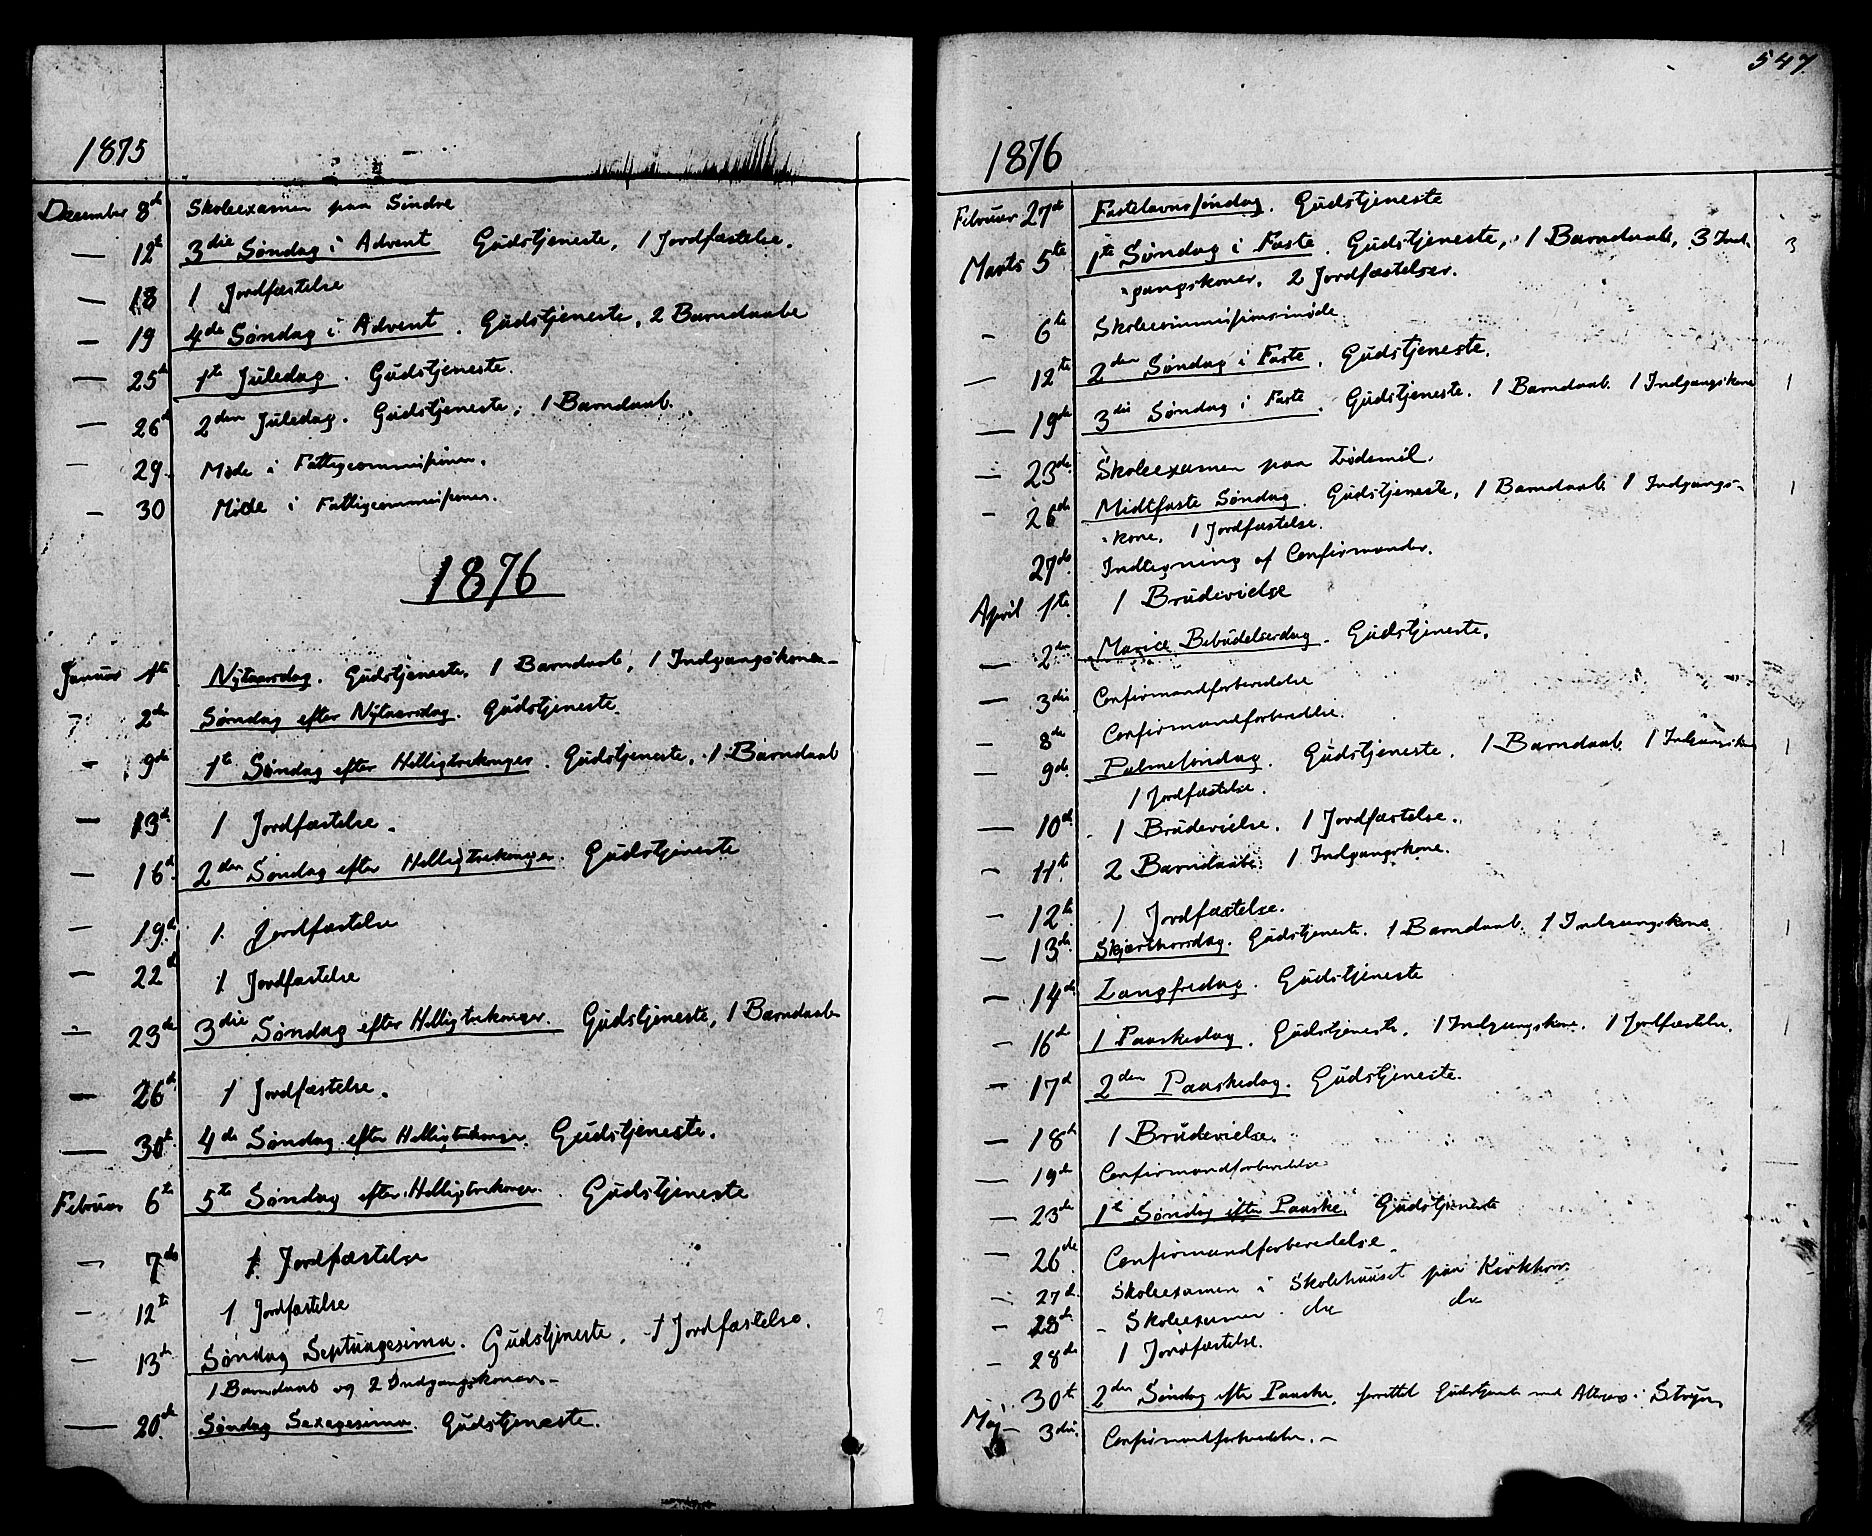 1875
December 8de Skoleexamen paa Sindre
— 12te 3die Søndag i Advent Gudstjeneste, 1 Jordfæstelse.
— 18 1 Jordfæstelse
— 19 4de Søndag i Advent. Gudstjeneste, 2 Barndaabe
— 25de 1te Juledag. Gudstjeneste.
— 26de 2den Juledag. Gudstjeneste, 1 Barndaab.
— 29. Møde i Fattigcommissionen.
— 30 Møde i Fattigcommissionen.
1876
Januar 1te Nytaarsdag. Gudstjeneste, 1 Barndaab, 1 Indgangskone
— 2de Søndag efter Nytaarsdag. Gudstjeneste.
— 9de 1te Søndag efter Helligtrekonger. Gudstjeneste, 1 Barndaab
— 13de 1 Jordfæstelse.
— 16de 2den Søndag efter Helligtrekonger. Gudstjeneste
— 19de 1 Jordfæstelse
— 22de 1 Jordfæstelse
— 23de 3die Søndag efter Helligtrekonger. Gudstjeneste, 1 Barndaab
— 26de 1 Jordfæstelse.
— 30te 4de Søndag efter Helligtrekonger. Gudstjeneste.
Februar 6te 5te Søndag efter Helligtrekonger. Gudstjeneste
— 7de 1 Jordfæstelse
— 12te 1 Jordfæstelse
— 13de Søndag Septuagesima. Gudstjeneste. 1 Jordfæstelse.
1 Barndaab og 2 Indgangskoner.
— 20de Søndag Sexagesima. Gudstjeneste.
547.
1876
Februar 27de Fastelavnssøndag. Gudstjeneste
Marts 5te 1te Søndag i Faste. Gudstjeneste, 1 Barndaab, 3 Ind- 3
gangskoner. 2 Jordfæstelser.
— 6te Skolecommissionsmøde.
— 12te 2den Søndag i Faste. Gudstjeneste.
— 19de 3die Søndag i Faste. Gudstjeneste. 1 Barndaab. 1 Indgangskone 1
— 23de Skoleexamen paa Lødemel.
— 26de Midtfaste Søndag. Gudstjeneste, 1 Barndaab 1 Indgangs- 1
kone. 1 Jordfæstelse.
27de Indtegning af Confirmander.
April 1te 1 Brudevielse
— 2den Mariæ Bebudelsesdag. Gudstjeneste.
— 3die Confirmandforberedelse
— 8de Confirmandforberedelse.
— 9de Palmesøndag. Gudstjeneste. 1 Barndaab 1 Indgangskone 1
1 Jordfæstelse.
— 10de 1 Brudevielse. 1 Jordfæstelse.
— 11te 2 Barndaabe. 1 Indgangskone. 1
— 12te 1 Jordfæstelse.
— 13de Skjærthorsdag. Gudstjeneste. 1 Barndaab 1 Indgangskone 1
— 14de Langfredag. Gudstjeneste
— 16de 1 Paaskedag. Gudstjeneste. 1 Indgangskone. 1 Jordfæstelse. 1
— 17de 2den Paaskedag. Gudstjeneste.
— 18de 1 Brudevielse.
— 19de Confirmandforberedelse
— 23de 1te Søndag efter Paaske. Gudstjeneste
— 26de Confirmandforberedelse.
— 27de Skoleexamen i Skolehuuset paa Kirkhorn
— 28de Skoleexamen do do
— 28de 1 Jordfæstelse.
30te 2den Søndag efter Paaske, forrettet Gudstjeneste med Altergang i Stryn
Maj — 3die Confirmandforberedelse.